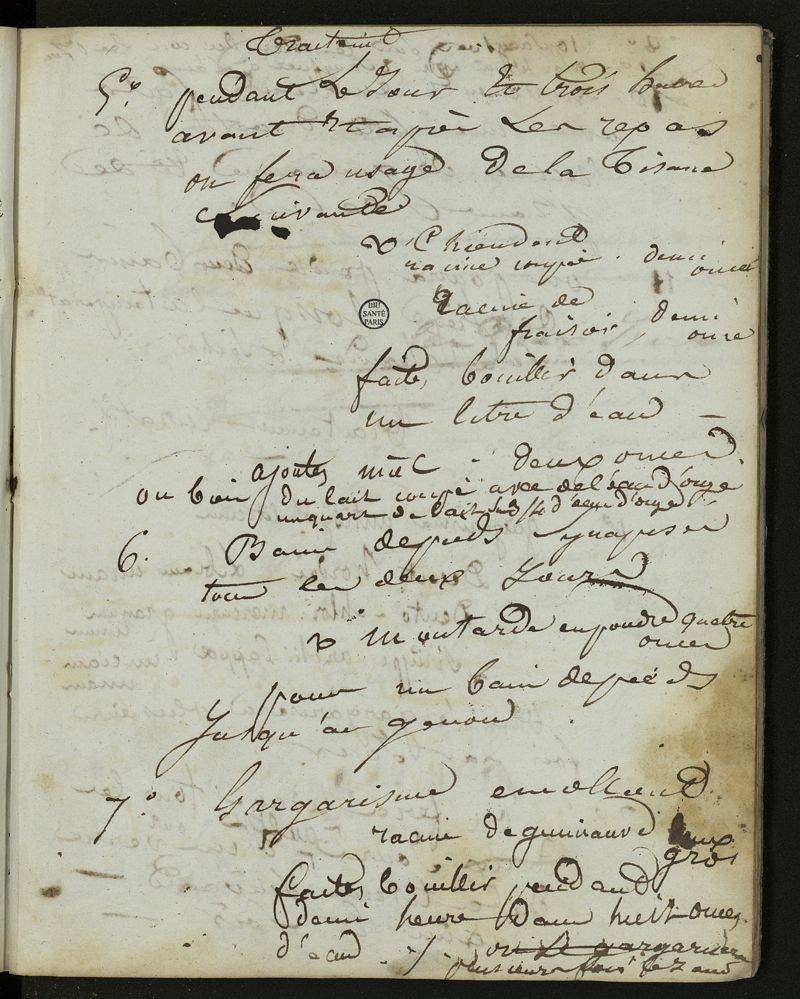 Traitement
5.° pendant Le Jour Et trois heures
avant Et après Les repas
on fera usage de la Tisane
suivante
Chiendent
racine coupée . demi
once
Racine de
fraisier, demi
once
faites bouillir dans
un litre d'eau —
ajoutes miel - deux onces
ou bien du lait coupé avec de l'eau d'orge
un quart de lait 3/4 d'eau d'orge
6. Bain de pieds synapisé
tous les deux Jours
moutarde en poudre quatre
onces
pour un bain de pieds
Jusqu'au genou .
7.° Gargarisme emollient
racine de guimauve deux
gros
faites bouillir pendant
demi heure dans huit onces
d'eau ./. on se gargarisera
plusieurs fois
BIU
SANTÉ
PARIS